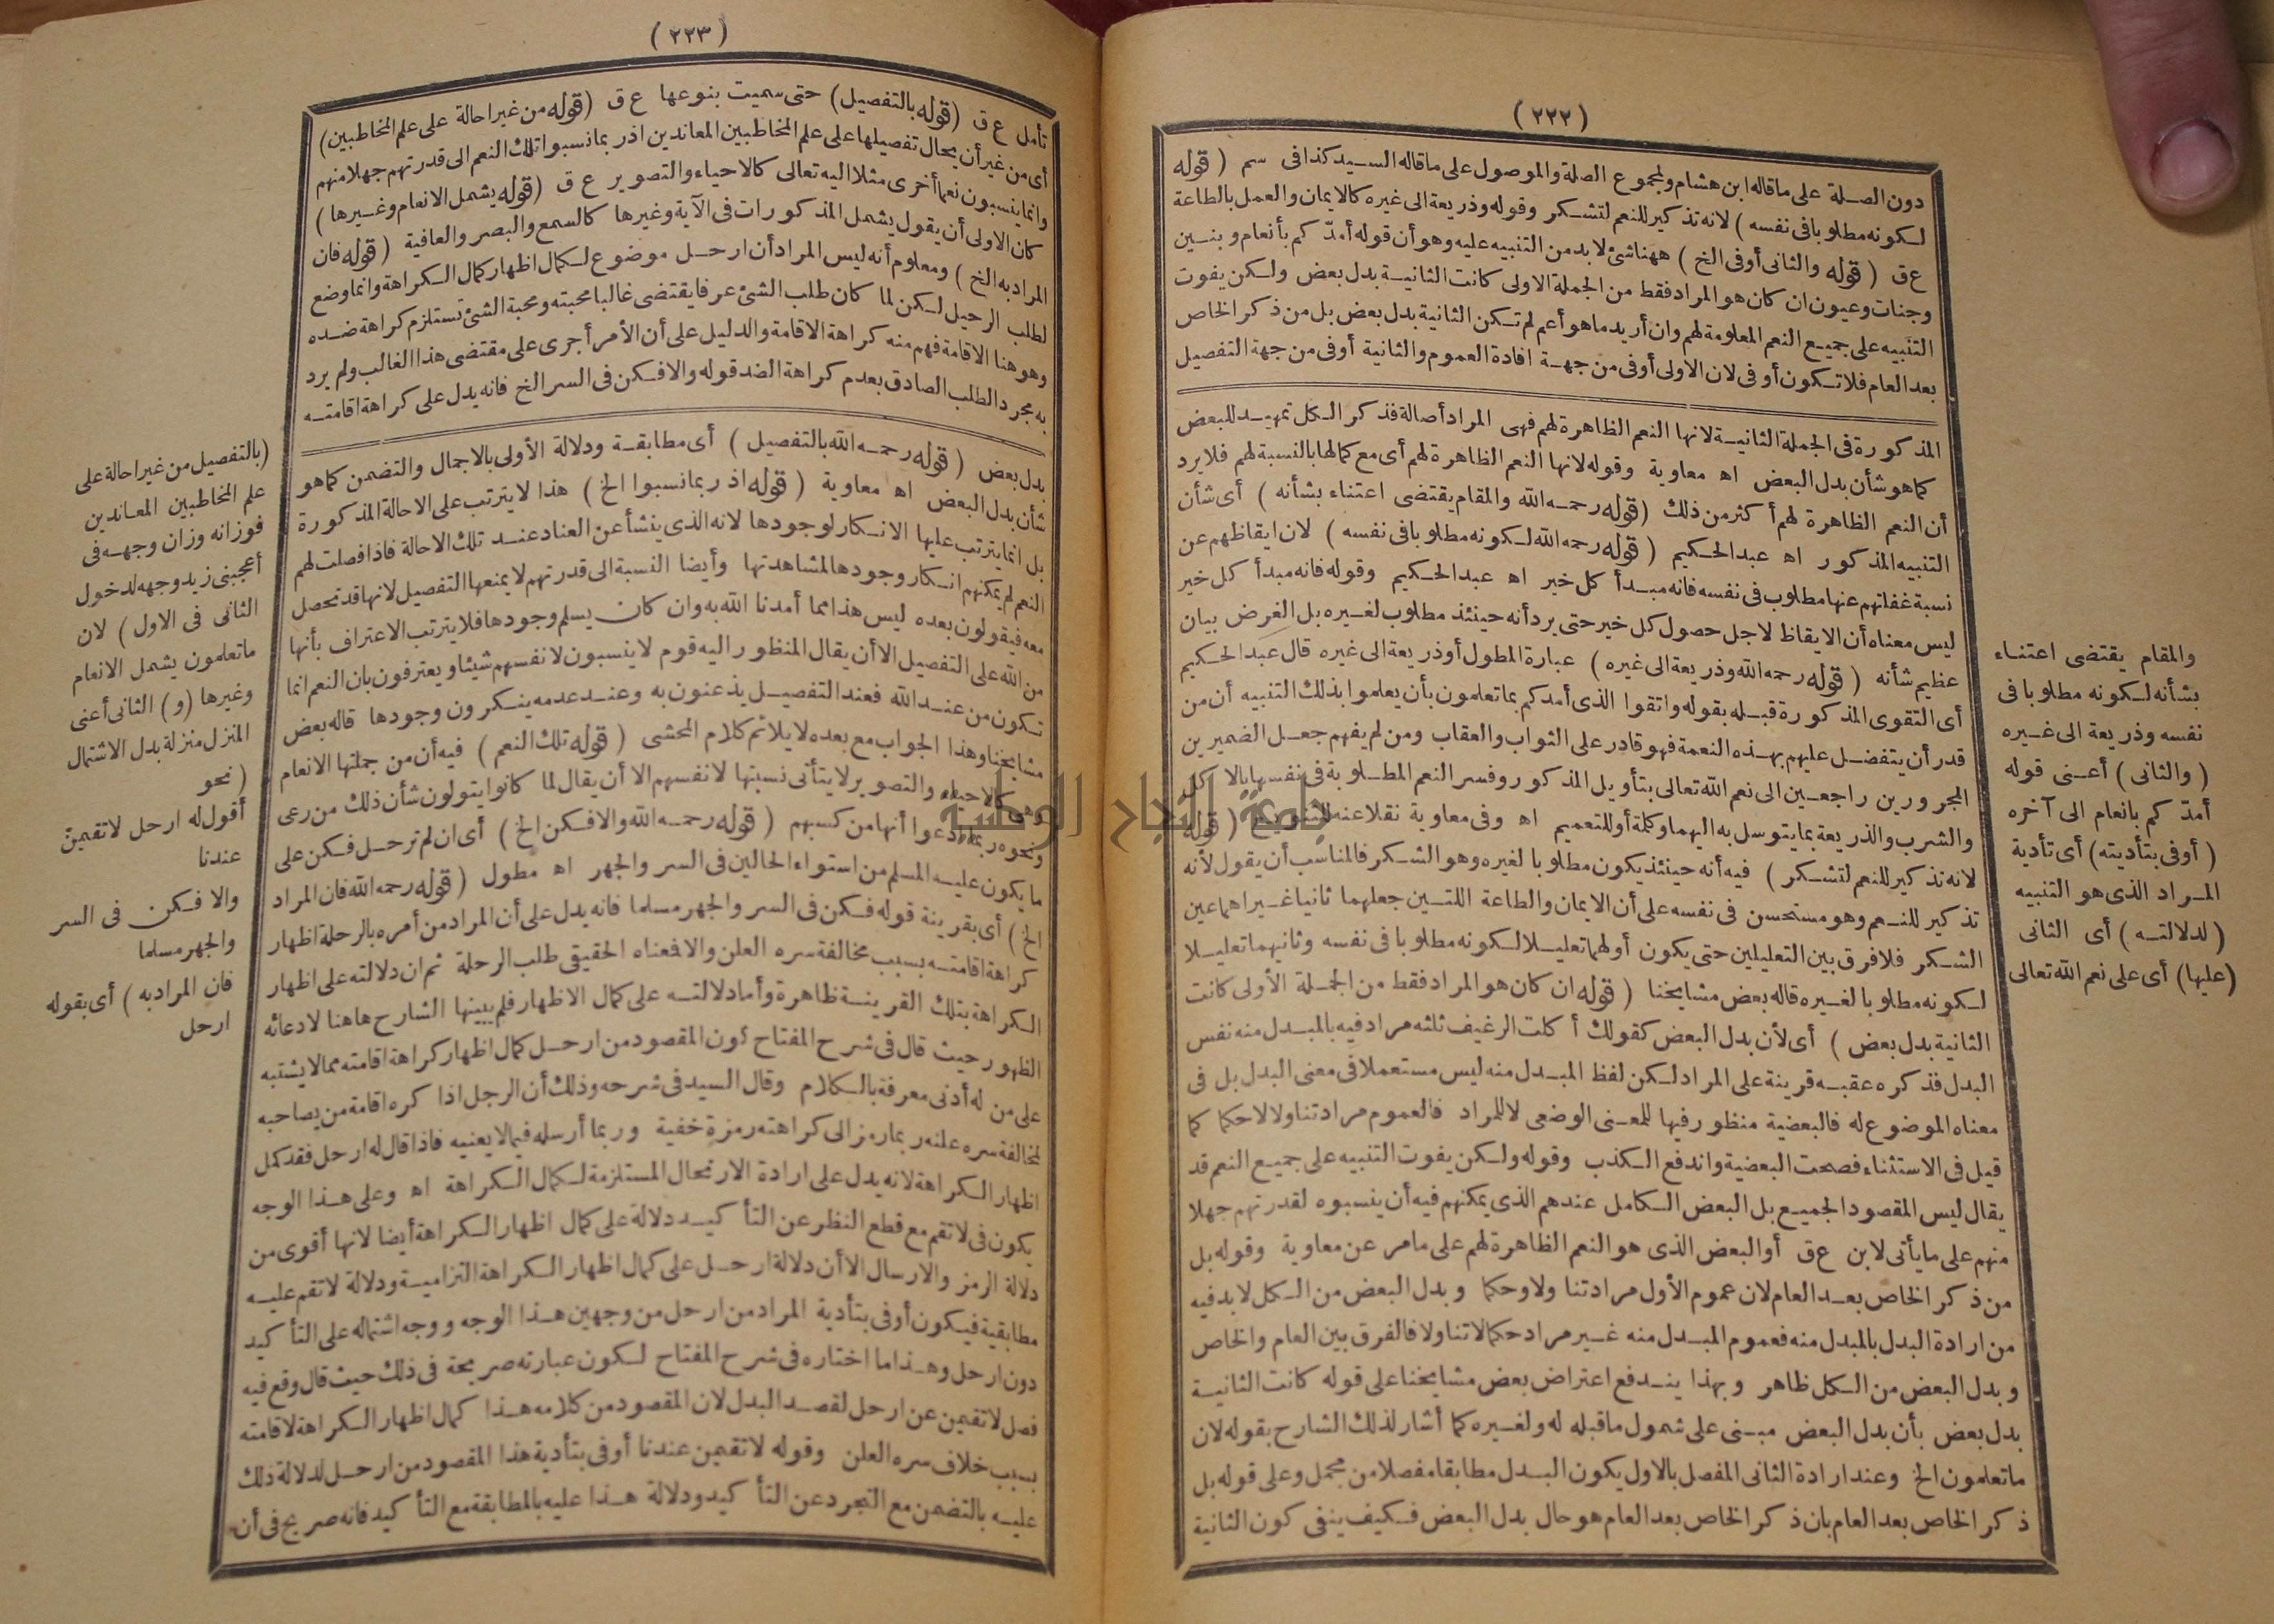 (٢٢٢)
دون الصلة على ماقاله ابن هشام ولمجموع الصلة والموصول على ماقاله السيد كذا فى سم (قوله
لكونه مطلوبا فى نفسه) لانه تذكير للنعم لتشكر وقوله وذريعة الى غيره كالايمان والعمل بالطاعة
ع ق (قوله والثانى أوفى الخ) ههنا شئ لابد من التنبيه عليه وهو أن قوله أمدّكم بأنعام وبنين
وجنات وعيون ان كان هو المراد فقط من الجملة الاولى كانت الثانية بدل بعض ولكن يفوت
التنبيه على جميع النعم المعلومة لهم وان أريد ماهو أعم لم تكن الثانية بدل بعض بل من ذكر الخاص
بعد العام فلا تكون أوفى لان الاولى أوفى من جهة افادة العموم والثانية أوفى من جهة التفصيل
المذكورة فى الجملة الثانية لانها النعم الظاهرة لهم فهى المراد أصالة فذكر الكل تمهيد للبعض
كما هو شأن بدل البعض اه معاوية وقوله لانها النعم الظاهرة لهم أى مع كمالها بالنسبة لهم فلا يرد
أن النعم الظاهرة لهم أكثر من ذلك (قوله رحمه الله والمقام يقتضى اعتناء بشأنه) أى شأن
التنبيه المذكور اه عبد الحكيم (قوله رحمه الله لكونه مطلوبا فى نفسه) لان ايقاظهم عن
نسبة غفلتهم عنها مطلوب فى نفسه فانه مبدأ كل خير اه عبد الحكيم وقوله فانه مبدأ كل خير
ليس معناه أن الايقاظ لاجل حصول كل خير حتى يرد أنه حينئذ مطلوب لغيره بل الغرض بيان
عظيم شأنه (قوله رحمه الله وذريعة الى غيره) عبارة المطول أو ذريعة الى غيره قال عبد الحكيم
أى التقوى المذكورة قبله بقوله واتقوا الذى أمدكم بما تعلمون بأن يعلموا بذلك التنبيه أن من
قدر أن يتفضل عليهم بهذه النعمة فهو قادر على الثواب والعقاب ومن لم يفهم جعل الضميرين
المجرورين راجعين الى نعم الله تعالى بتأويل المذكور وفسر النعم المطلوبة فى نفسها بالاكل
والشرب والذريعة بما يتوسل به اليهما وكلمة أو للتعميم اه وفى معاوية نقلا عنه للتنويع (قوله
لانه تذكير للنعم لتشكر) فيه أنه حينئذ يكون مطلوبا لغيره وهو الشكر فالمناسب أن يقول لأنه
تذكير للنعم وهو مستحسن فى نفسه على أن الايمان والطاعة اللتين جعلهما ثانيا غيرا هما عين
الشكر فلا فرق بين التعليلين حتى يكون أولهما تعليلا لكونه مطلوبا فى نفسه وثانيهما تعليلا
لكونه مطلوبا لغيره قاله بعض مشايخنا (قوله ان كان هو المراد فقط من الجملة الأولى كانت
الثانية بدل بعض) أى لأن بدل البعض كقولك أكلت الرغيف ثلثه مراد فيه بالمبدل منه نفس
البدل فذكره عقبه قرينة على المراد لكن لفظ المبدل منه ليس مستعملا فى معنى البدل بل فى
معناه الموضوع له فالبعضية منظور فيها للمعنى الوضعى لا للمراد فالعموم مراد تناولا لا حكما كما
قيل فى الاستثناء فصحت البعضية واندفع الكذب وقوله ولكن يفوت التنبيه على جميع النعم قد
يقال ليس المقصود الجميع بل البعض الكامل عندهم الذى يمكنهم فيه أن ينسبوه لقدرتهم جهلا
منهم على ما يأتى لابن ع ق أو البعض الذى هو النعم الظاهرة لهم على ما مر عن معاوية وقوله بل
من ذكر الخاص بعد العام لان عموم الأول مراد تناولا وحكما وبدل البعض من الكل لابد فيه
من ارادة البدل بالمبدل منه فعموم المبدل منه غير مراد حكما لا تناولا فالفرق بين العام والخاص
وبدل البعض من الكل ظاهر وبهذا يندفع اعتراض بعض مشايخنا على قوله كانت الثانية
بدل بعض بأن بدل البعض مبنى على شمول ماقبله له ولغيره كما أشار لذلك الشارح بقوله لان
ماتعلمون الخ وعند ارادة الثانى المفصل بالاول يكون البدل مطابقا مفصلا من مجمل وعلى قوله بل
ذكر الخاص بعد العام بان ذكر الخاص بعد العام هو حال بدل البعض فكيف ينفى كون الثانية
والمقام يقتضى اعتناء
بشأنه لكونه مطلوبا فى
نفسه وذريعة الى غيره
(والثانى) أعنى قوله
أمدّكم بانعام الى آخره
(أوفى بتأديته) أى تأدية
المراد الذى هو التنبيه
(لدلالته) أى الثانى
(عليها) أى على نعم الله تعالى
(٢٢٣)
تأمل ع ق (قوله بالتفصيل) حتى سميت بنوعها ع ق (قوله من غير احالة على علم المخاطبين)
أى من غير أن يحال تفصيلها على علم المخاطبين المعاندين اذ ربما نسبوا تلك النعم الى قدرتهم جهلا منهم
وانما ينسبون نعما أخرى مثلا اليه تعالى كالاحياء والتصوير ع ق (قوله يشمل الانعام وغيرها)
كان الاولى أن يقول يشمل المذكورات فى الآية وغيرها كالسمع والبصر والعافية (قوله فان
المراد به الخ) ومعلوم أنه ليس المراد أن ارحل موضوع لكمال اظهار كمال الكراهة وانما وضع
لطلب الرحيل لكن لما كان طلب الشئ عرفا يقتضى غالبا محبته ومحبة الشئ تستلزم كراهة ضده
وهو هنا الاقامة فهم منه كراهة الاقامة والدليل على أن الأمر أجرى على مقتضى هذا الغالب ولم يرد
به مجرد الطلب الصادق بعدم كراهة الضد قوله والا فكن فى السر الخ فانه يدل على كراهة اقامته
بدل بعض (قوله رحمه الله بالتفصيل) أى مطابقة ودلالة الأولى بالاجمال والتضمن كما هو
شأن بدل البعض اه معاوية (قوله اذ ربما نسبوا الخ) هذا لا يترتب على الاحالة المذكورة
بل انما يترتب عليها الانكار لوجودها لانه الذى ينشأ عن العناد عند تلك الاحالة فاذا فصلت لهم
النعم لم يمكنهم انكار وجودها لمشاهدتها وأيضا النسبة الى قدرتهم لا يمنعها التفصيل لانها قد تحصل
معه فيقولون بعده ليس هذا مما أمدنا الله به وان كان يسلم وجودها فلا يترتب الاعتراف بأنها
من الله على التفصيل الا أن يقال المنظور اليه قوم لا ينسبون لانفسهم شيئا ويعترفون بان النعم انما
تكون من عند الله فعند التفصيل يذعنون به وعند عدمه ينكرون وجودها قاله بعض
مشايخنا وهذا الجواب مع بعده لا يلائم كلام المحشى (قوله تلك النعم) فيه أن من جملتها الانعام
وهى كالاحياء والتصوير لا يتأتى نسبتها لانفسهم الا أن يقال لما كانوا يتولون شأن ذلك من رعى
ونحوه ربما ادعوا أنها من كسبهم (قوله رحمه الله والا فكن الخ) أى ان لم ترحل فكن على
ما يكون عليه المسلم من استواء الحالين فى السر والجهر اه مطول (قوله رحمه الله فان المراد
الخ) أى بقرينة قوله فكن فى السر والجهر مسلما فانه يدل على أن المراد من أمره بالرحلة اظهار
كراهة اقامته بسبب مخالفة سره العلن والا فمعناه الحقيقى طلب الرحلة ثم ان دلالته على اظهار
الكراهة بتلك القرينة ظاهرة وأما دلالته على كمال الاظهار فلم يبينها الشارح هاهنا لادعائه
الظهور حيث قال فى شرح المفتاح كون المقصود من ارحل كمال اظهار كراهة اقامته مما لا يشتبه
على من له أدنى معرفة بالكلام وقال السيد فى شرحه وذلك أن الرجل اذا كره اقامة من يصاحبه
لمخالفة سره علنه ربما رمز الى كراهته رمزة خفية وربما أرسله فيما لا يعنيه فاذا قال له ارحل فقد كمل
اظهار الكراهة لانه يدل على ارادة الارتحال المستلزمة لكمال الكراهة اه وعلى هذا الوجه
يكون فى لا تقم مع قطع النظر عن التأكيد دلالة على كمال اظهار الكراهة أيضا لانها أقوى من
دلالة الرمز والارسال الا أن دلالة ارحل على كمال اظهار الكراهة التزامية ودلالة لا تقم عليه
مطابقية فيكون أوفى بتأدية المراد من ارحل من وجهين هذا الوجه ووجه اشتماله على التأكيد
دون ارحل وهذا ما اختاره فى شرح المفتاح لكون عبارته صريحة فى ذلك حيث قال وقع فيه
فصل لا تقيمن عن ارحل لقصد البدل لان المقصود من كلامه هذا كمال اظهار الكراهة لاقامته
بسبب خلاف سره العلن وقوله لا تقيمن عندنا أوفى بتأدية هذا المقصود من ارحل لدلالة ذلك
عليه بالتضمن مع التجرد عن التأكيد ودلالة هذا عليه بالمطابقة مع التأكيد فانه صريح فى أن
(بالتفصيل من غير احالة على
علم المخاطبين المعاندين
فوزانه وزان وجهه فى
أعجبنى زيد وجهه لدخول
الثانى فى الاول) لان
ماتعلمون يشمل الانعام
وغيرها (و) الثانى أعنى
المنزل منزلة بدل الاشتمال
(نحو
أقول له ارحل لاتقيمن
عندنا
والا فكن فى السر
والجهر مسلما
فان المراد به) أى بقوله
ارحل
جامعة النجاح الوطنية